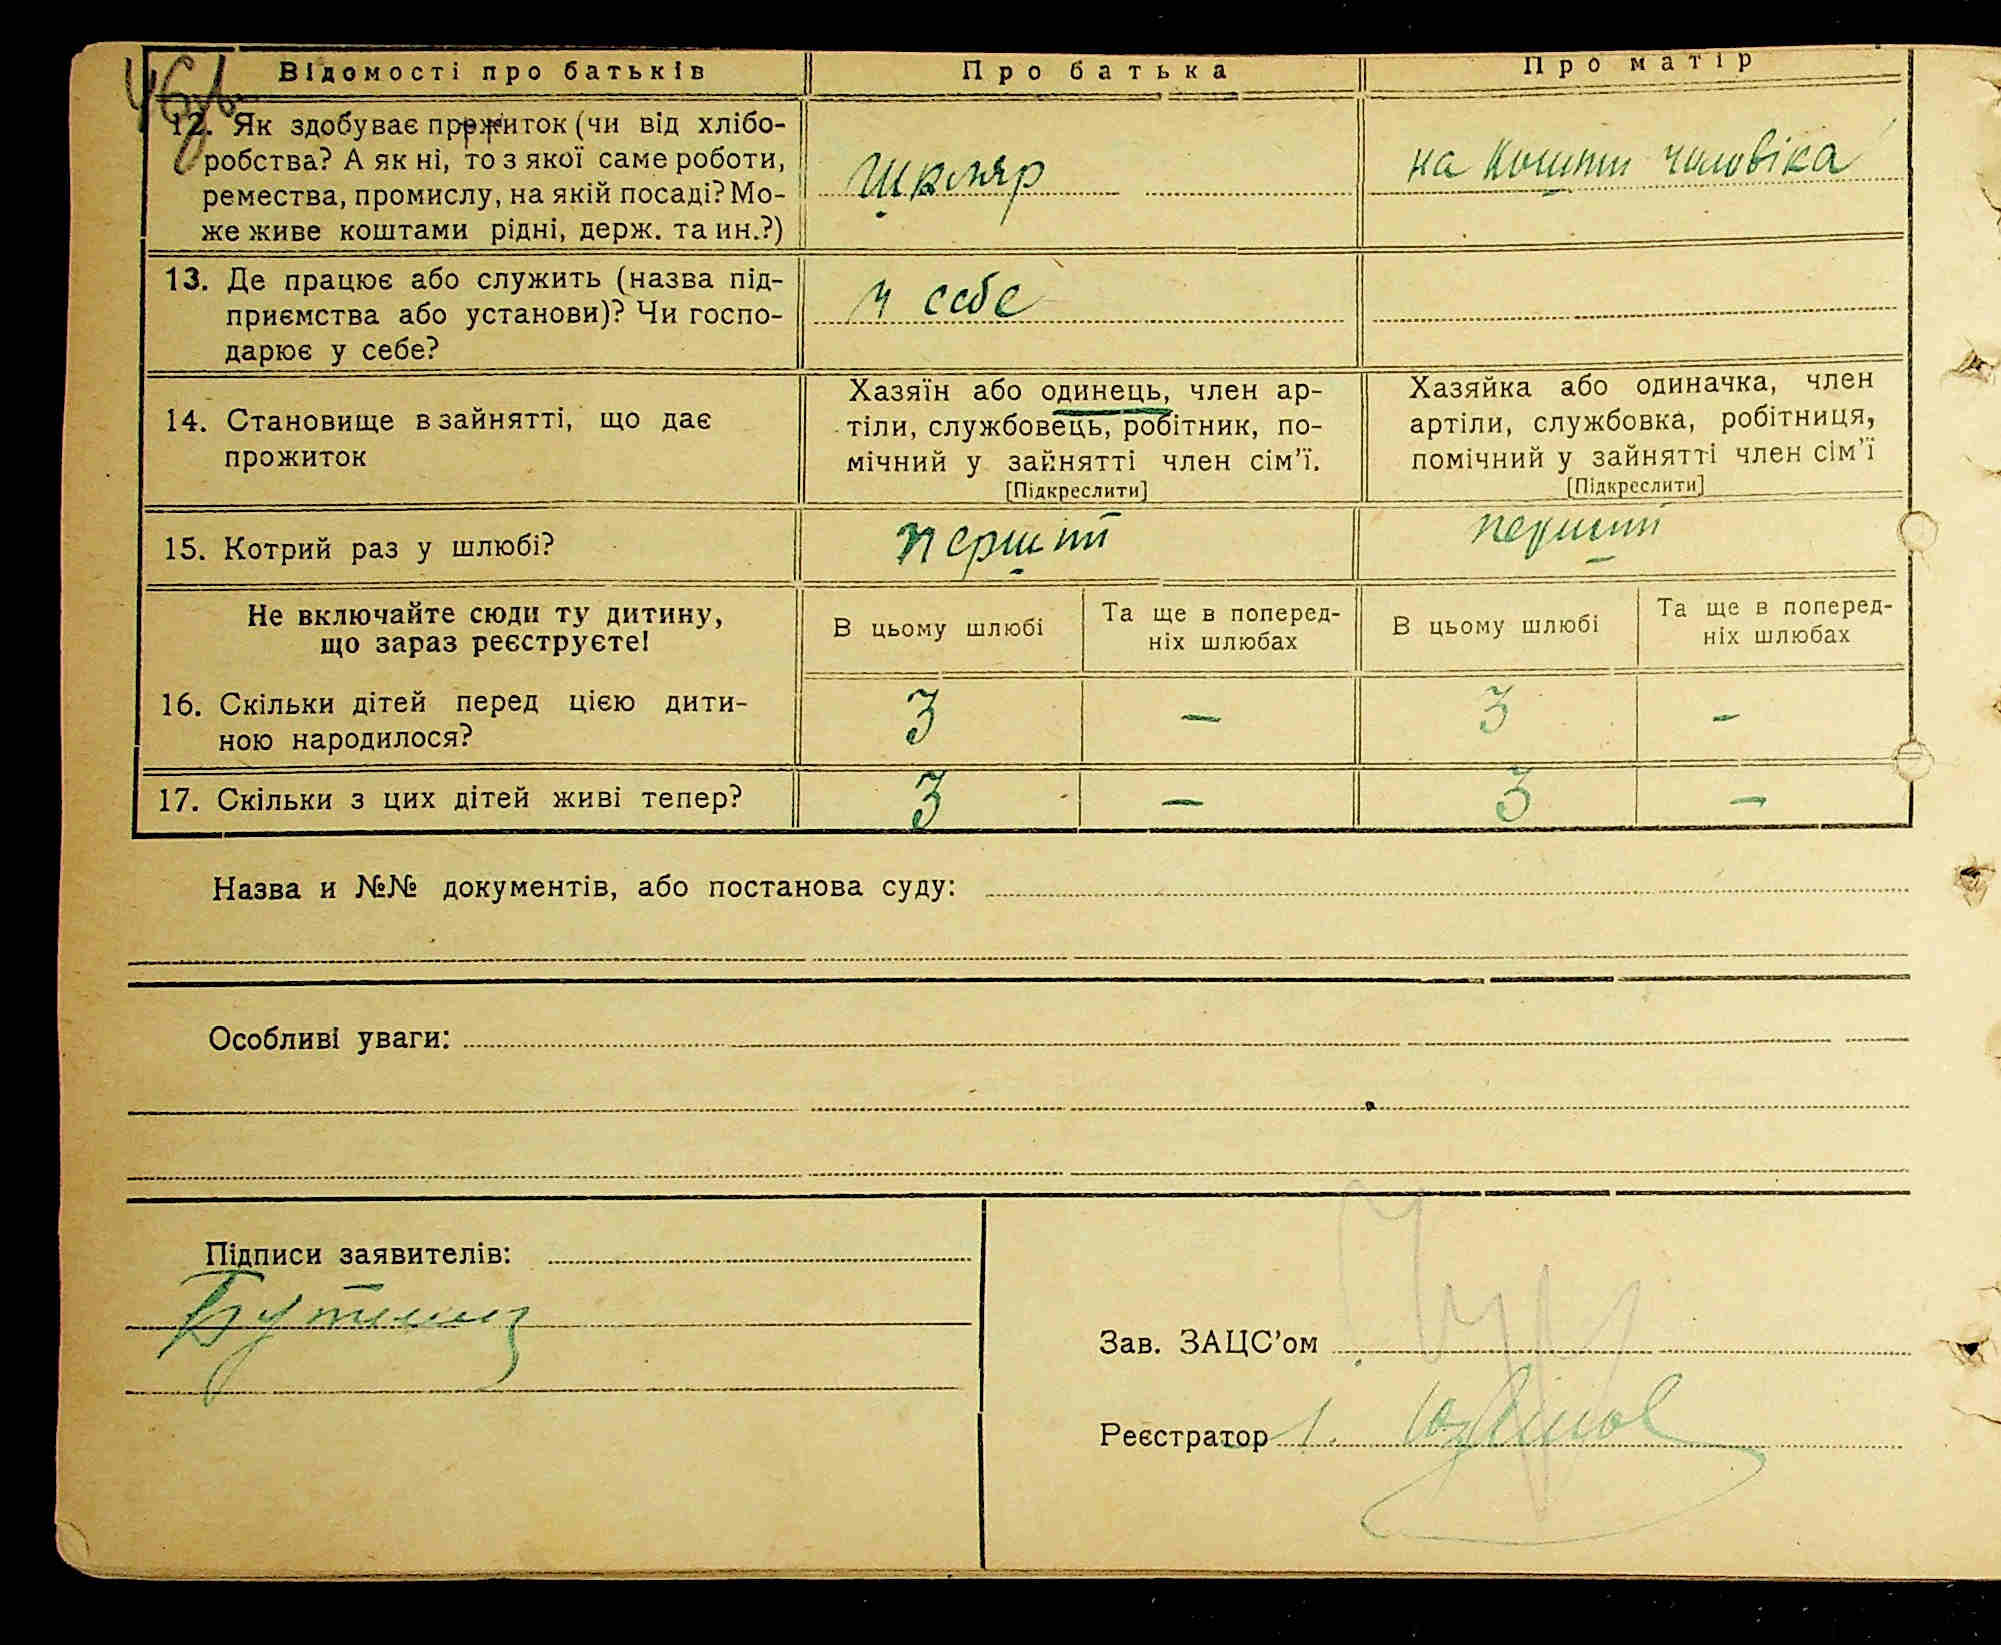 Відомості про батьків Про батька Про матір
12. Як здобуває прожиток (чи від хлібо-
робства? А як ні, то з якої саме роботи,
ремества, промислу, на якій посаді? Мо-
же живе коштами рідні, держ. та ин.?)
шкляр
на кошти чоловіка
13. Де працює або служить (назва під-
приємства або установи)? Чи госпо-
дарює у себе?
у себе
14. Становище в зайнятті, що дає
прожиток
Хазяїн або одинець, член ар-
тіли, службовець, робітник, по-
мічний у зайнятті член сім'ї.
[Підкреслити]
Хазяйка або одиначка, член
артіли, службовка, робітниця,
помічний у зайнятті член сім'ї
[Підкреслити]
15. Котрий раз у шлюбі? перший перший
Не включайте сюди ту дитину,
що зараз реєструєте!
В цьому шлюбі
Та ще в поперед-
ніх шлюбах
В цьому шлюбі
Та ще в поперед-
ніх шлюбах
16. Скільки дітей перед цією дити-
ною народилося?
3 – 3 –
17. Скільки з цих дітей живі тепер? 3 – 3 –
Назва и №№ документів, або постанова суду:
Особливі уваги:
Підписи заявителів:
Зав. ЗАЦС'ом
Реєстратор